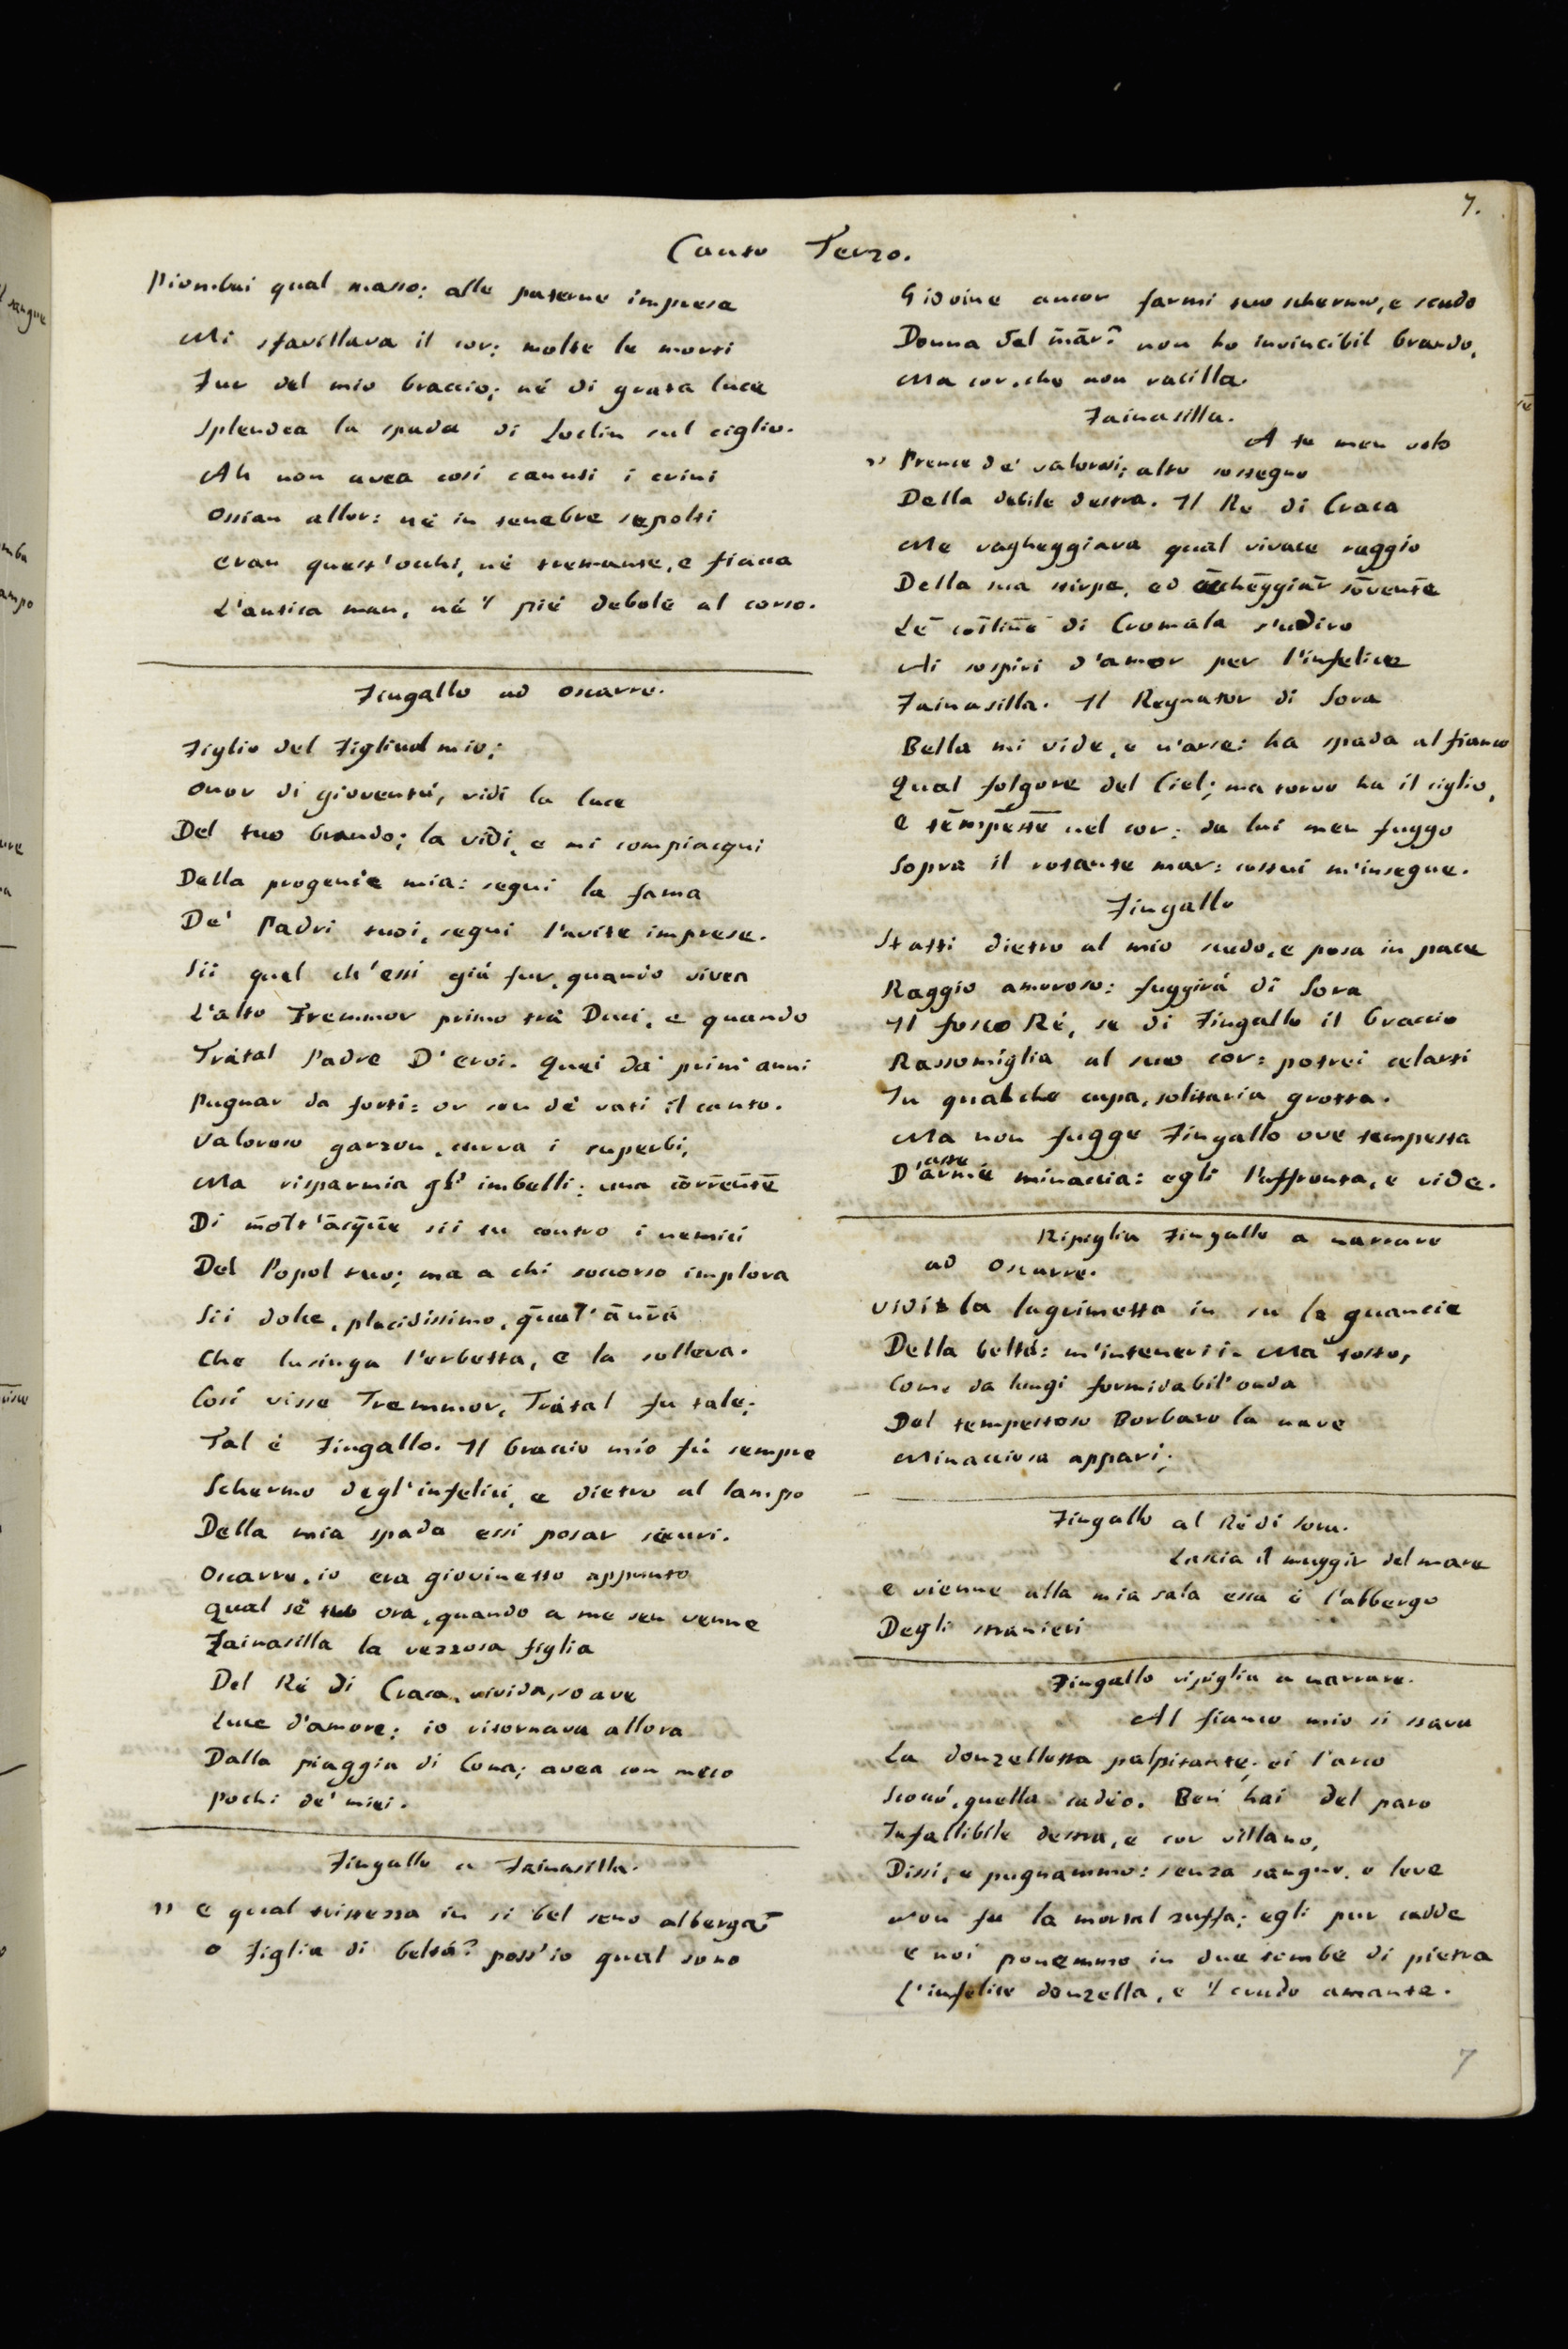 7.
Canto Terzo.
Piombai qual masso: alle paterne imprese
Mi sfavillava il cor: molte le morti
Fur del mio braccio; né di grata luce
Splendea la spada di Loclin sul ciglio.
Ah non avea così canuti i crini
Ossian allor: né in tenebre sepolti
eran quest'occhi, né tremante, e fiacca
L'antica man, né 'l pié debole al corso.
Fingallo ad Oscarre.
Figlio del Figliuol mio;
Onor di gioventù, vidi la luce
Del tuo brando; la vidi, e mi compiacqui
Della progenie mia: segui la fama
De' Padri tuoi, segui l'avite imprese.
Sii quel ch'essi già fur, quando vivea
L'alto Tremmor primo trà Duci, e quando
Tràtal Padre D'eroi. Quei da' primi anni
Pugnar da forti: or son de' vati il canto.
Valoroso garzon, curva i superbi,
Ma risparmia gl' imbelli: una corrente
Di molt'acque sii tu contro i nemici
Del Popol tuo; ma a chi soccorso implora
Sii dolce, placidissimo, qual' aura
Che lusinga l'erbetta, e la solleva.
Così visse Tremmor, Tràtal fu tale;
Tal è Fingallo. Il braccio mio fù sempre
Schermo degl'infelici, e dietro al lampo
Della mia spada essi posar securi.
Oscarre, io era giovinetto appunto
Qual sè tu ora, quando a me sen venne
Fainasilla la vezzosa figlia
Del Ré di Craca, vivida, soave
Luce d'amore; io ritornava allora
Dalla piaggia di Cona; avea con meco
Pochi de' miei.
Fingallo a Fainasilla.
" e qual tristezza in si bel seno alberga
o Figlia di beltà? poss'io qual sono
Giovine ancor farmi tuo schermo, e scudo
Donna del mar? non ho invincibil brando,
Ma cor, che non vacilla.
Fainasilla.
A te men volo
" Prence de' valorosi: alto sostegno
Della debile destra. Il Re di Craca
Me vagheggiava qual vivace raggio
Della sua stirpe, ed echeggiar sovente
Le colline di Cromàla s'udiro
Ai sospiri d'amor per l'infelice
Fainasilla. Il Regnator di Sora
Bella mi vide, e n'arse: ha spada al fianco
Qual folgore del Ciel; ma torvo ha il ciglio,
e tempeste nel cor: da lui men fuggo
Sopra il rotante mar: costui m'insegue.
Fingallo
Statti dietro al mio scudo, e posa in pace
Raggio amoroso: fuggirà di Sora
Il fosco Ré, se di Fingallo il braccio
Rassomiglia al suo cor: potrei celarti
In qualche cupa, solitaria grotta.
Ma non fugge Fingallo ove tempesta
D'arme aste minaccia: egli l'affronta, e ride.
Ripiglia Fingallo a narrare
ad Oscarre.
Vidi la lagrimetta in su le guancie
Della beltà: m'intenerii. Ma tosto,
Come da lungi formidabil'onda
Del tempestoso Borbaro la nave
Minacciosa apparì;
Fingallo al Ré di Sora.
Lascia il muggir del mare
e vienne alla mia sala essa è l'abbergo
Degli stranieri
Fingallo ripiglia a narrare.
Al fianco mio si stava
La donzelletta palpitante; ei l'arco
Scoccó, quella cadéo. Ben hai del paro
Infallibile destra, e cor villano,
Dissi, e pugnammo: senza sangue, o leve
Non fu la mortal zuffa; egli pur cadde
e noi ponemmo in due tombe di pietra
L'infelice donzella, e 'l crudo amante.
7